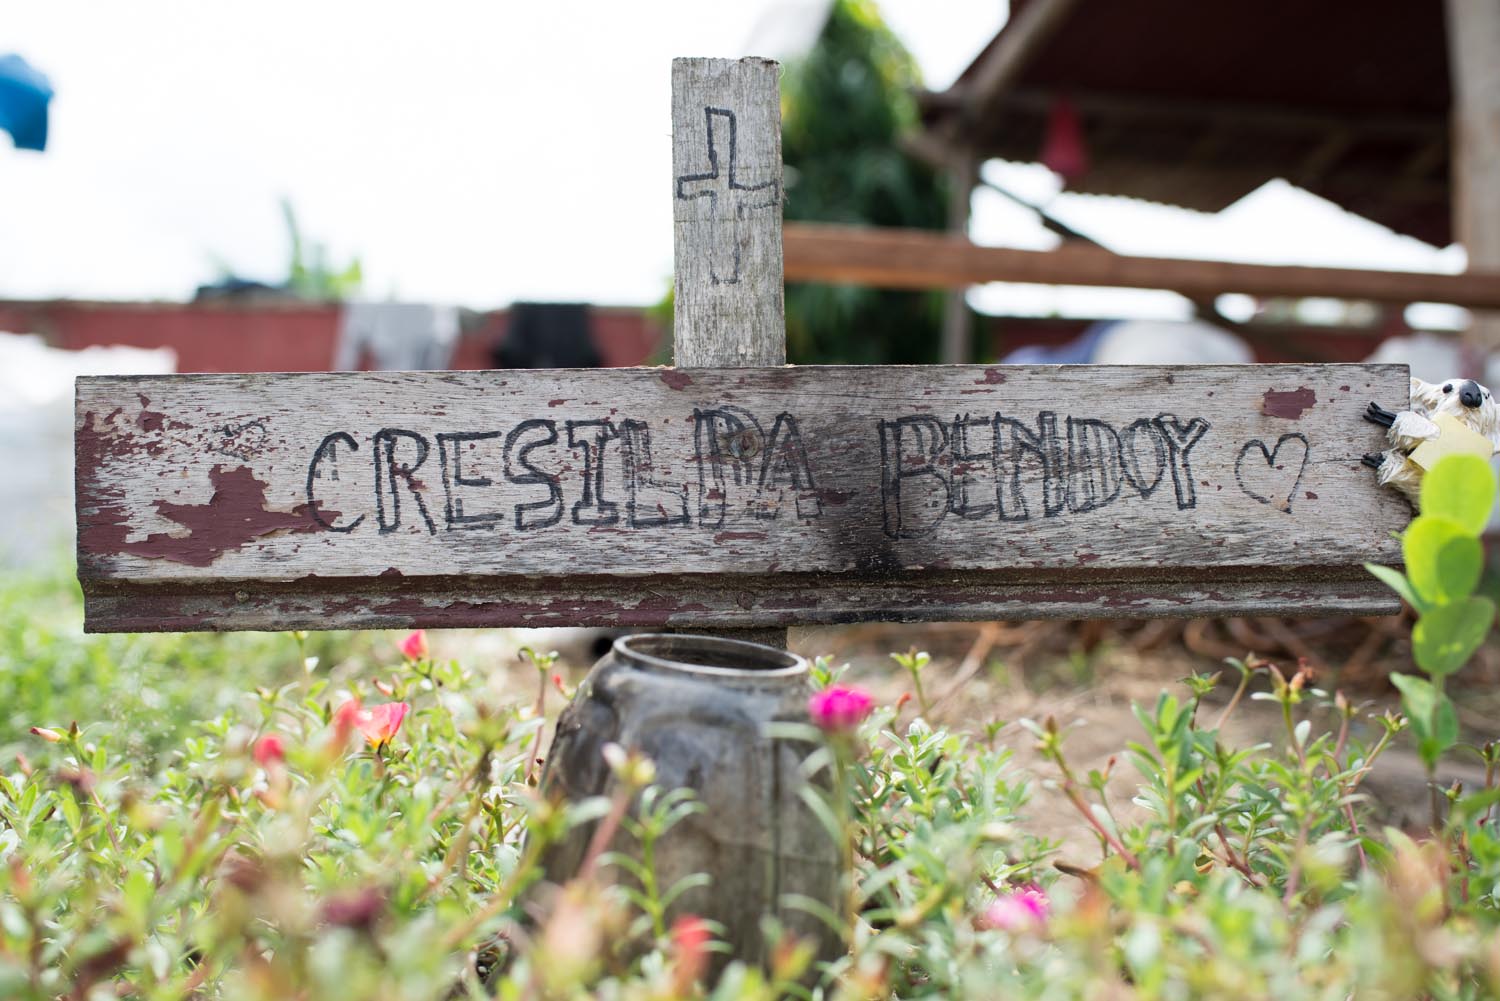 CRESILDA BENDOY